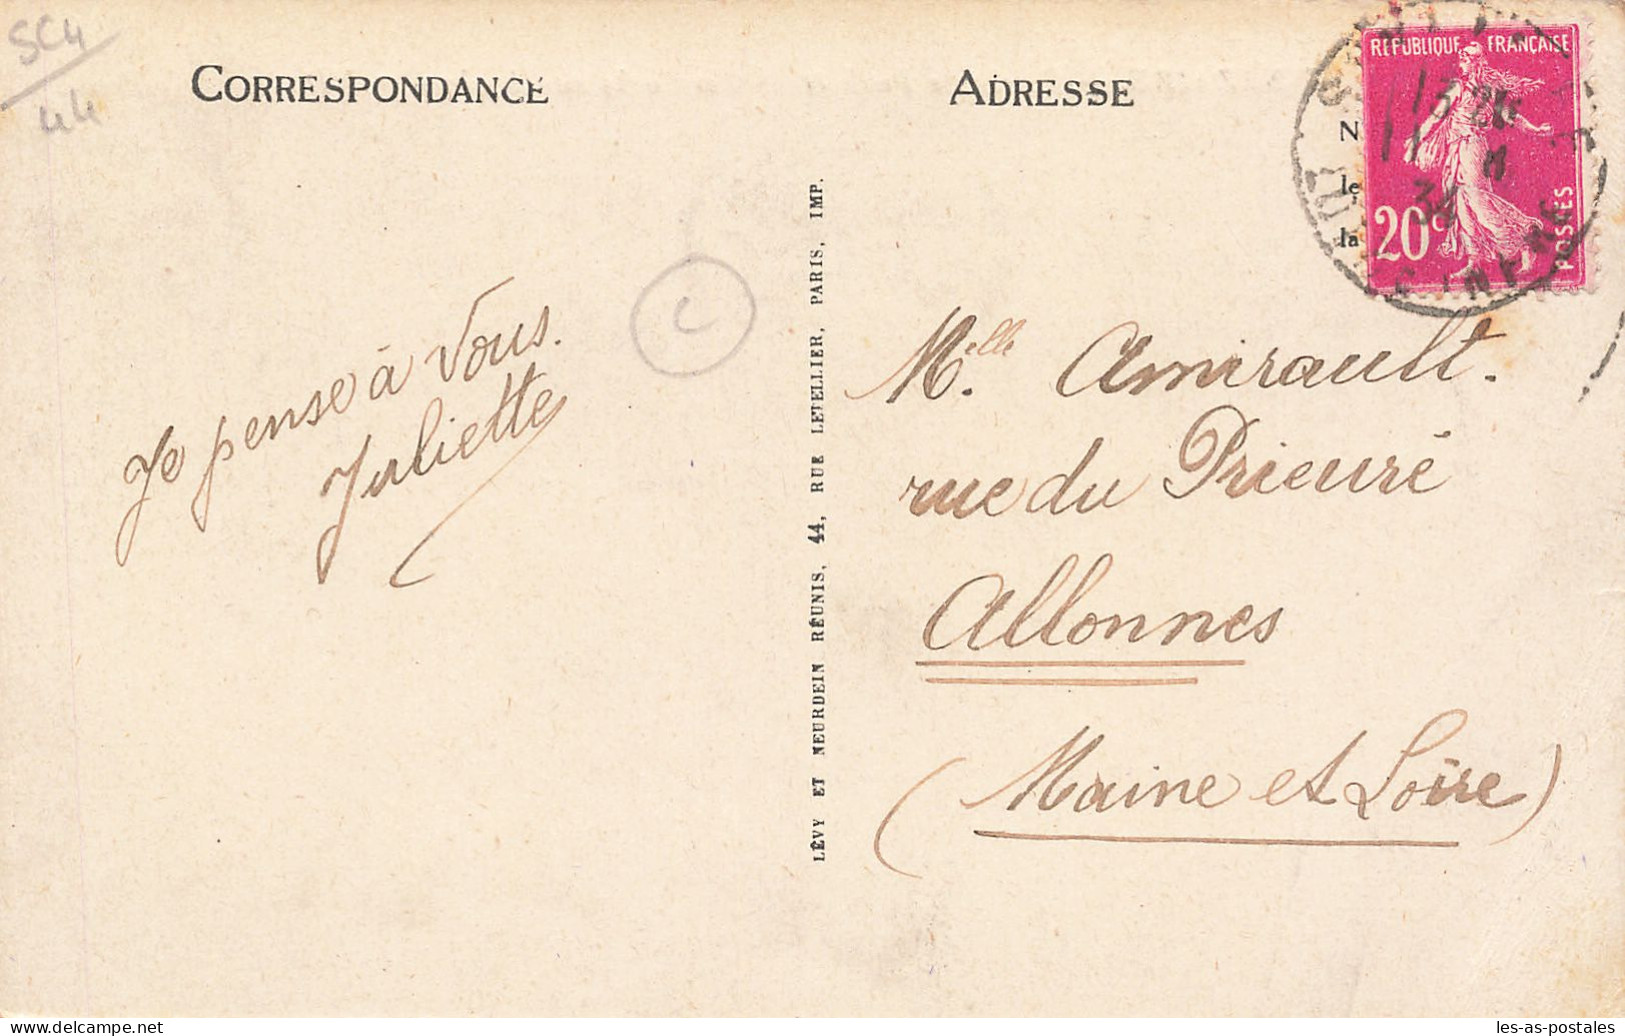 SC4
44
CORRESPONDANCE
ADRESSE
RÉPUBLIQUE FRANÇAISE
20c
POSTES
13
11
34
N
le
la
Je pense à Vous.
Juliette
C
LÉVY ET NEURDEIN RÉUNIS, 44, RUE LETELLIER, PARIS, IMP.
Melle Amirault.
rue du Prieuré
Allonnes
(Maine et Loire)
les-as-postales